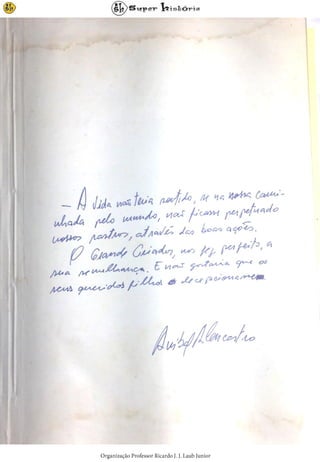 Super História
— A vida não teria sentido, se na nossa cami-
nhada pelo mundo, não ficasse perpetuado
nossos rastros, através das boas ações.
O Grande Criador, nos fez perfeito, a
sua semelhança. E não gostaria que os
seus queridos filhos o decepcionassem
Anibal Alencastro
Organização Professor Ricardo J. J. Laub Junior